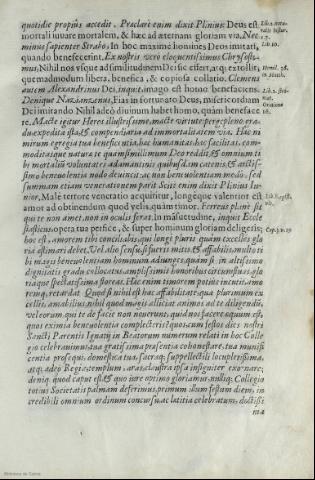 quotidie propius accedit. Præclarè enim dixit Plinius: Deus est
mortali iuuare mortalem, & hæc ad æternam gloriam via. Nec
minus sapienter Strabo, In hoc maximè homines Deos imitari,
quando benefecerint. Ex nostris verò eloquentissimus Chrysosto-
mus, Nihil nos vsque ad similitudinem Dei sic effert, atq; extollit,
quemadmodum libera, benefica, & copiosa collatio. Clemens
autem Alexandrinus Dei, inquit, imago est homo benefaciens.
Denique Nazianzenus, Fias infortunato Deus, misericordiam
Dei imitando. Nihil adeò diuinum habet homo, quàm beneface
re. Macte igitur Heres illustrissime, macte virtute, pergepleno gra-
du, expedita ista, & compendiaria ad immortalitatem via. Hac ni
mirum egregia tua beneficentia, hac humanitas, hac facilitas, com-
moditasque naturæ te quàm simillimum Deo reddit, & omnium ti
bi mortalium voluntates adamantinis quibusdam catenis, & arctissi-
simo beneuolentiæ nodo deuincit: ac non beneuolentiam modò, sed
summam etiam venerationem parit. Scitè enim dixit Plinius Iu-
nior, Malè terrore veneratio acquiritur, longèque valentior est
amor ad obtinendum quod velis, quàm timor. Ferreus planè sit
qui te non amet, non in oculis ferat. In mãsuetudine, inquit Eccle
siasticus, opera tua perfice, & super hominum gloriam diligeris;
hoc est, amorem tibi conciliabis, qui longè pluris quàm excellens glo
ria æstimari debet. Vel
bi magis beneuolentiam hominum adiunges, quàm si in altissimo
dignitatis gradu collocatus, amplissimis honoribus circumfluas, glo
riaque spectatissima floreas. Hæc enim timorem potius incutit, amo
rem q́; retardat. Quòd si nihil est hac affabilitate, qua plurimùm ex
cellis, amabilius, nihil quod magis alliciat animos ad te diligendũ,
vel eorum, qui te de facie non nouerunt, quid nos facere æquum est,
quos eximia beneuolentia complecteris? quos, cum festos dies nostri
Sancti Parentis Ignatij in Beatorum numerum relati in hoc Colle
gio celebraremus, tua gratissima præsentia cohonestare, tua munifi
centia prosequi, domestica tua, sacraq; suppellectili locupletissima,
atq; adeo Regia, templum, aras, claustra ipsa insigniter exornare;
deniq; quod caput est, & quo iure optimo gloriamur, nulliq; Collegio
totius Societatis palmam deferimus, primum illum festum diem, in
credibili omnium ordinum concursu, ac lætitia celebratum, doctissi
ma
Lib. 2. natu-
ralis histor.
c. 7.
Lib. 10.
Lib. 2. Stro-
mat.
Oratione
16.
Cap. 3. v. 19
Biblioteca de Galicia